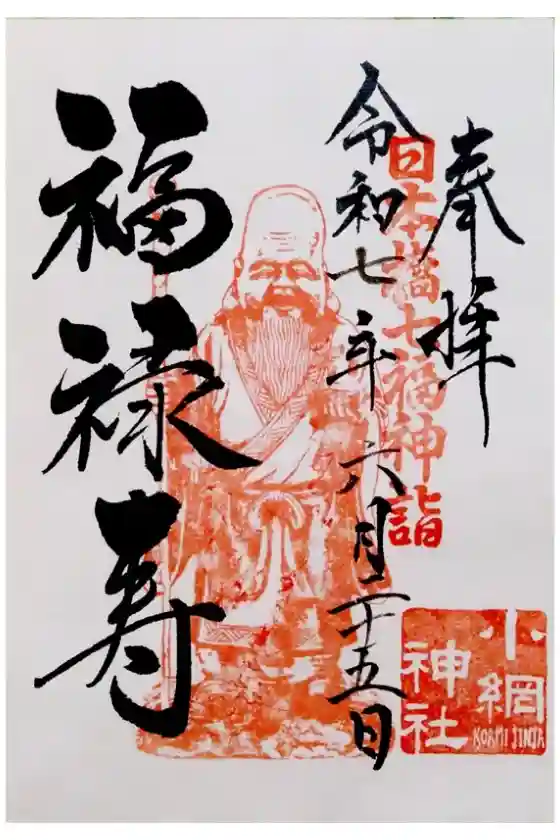 奉拝
日本橋七福神詣
令和七年六月二十五日
福禄寿
小網
神社
KOAMI JINJA